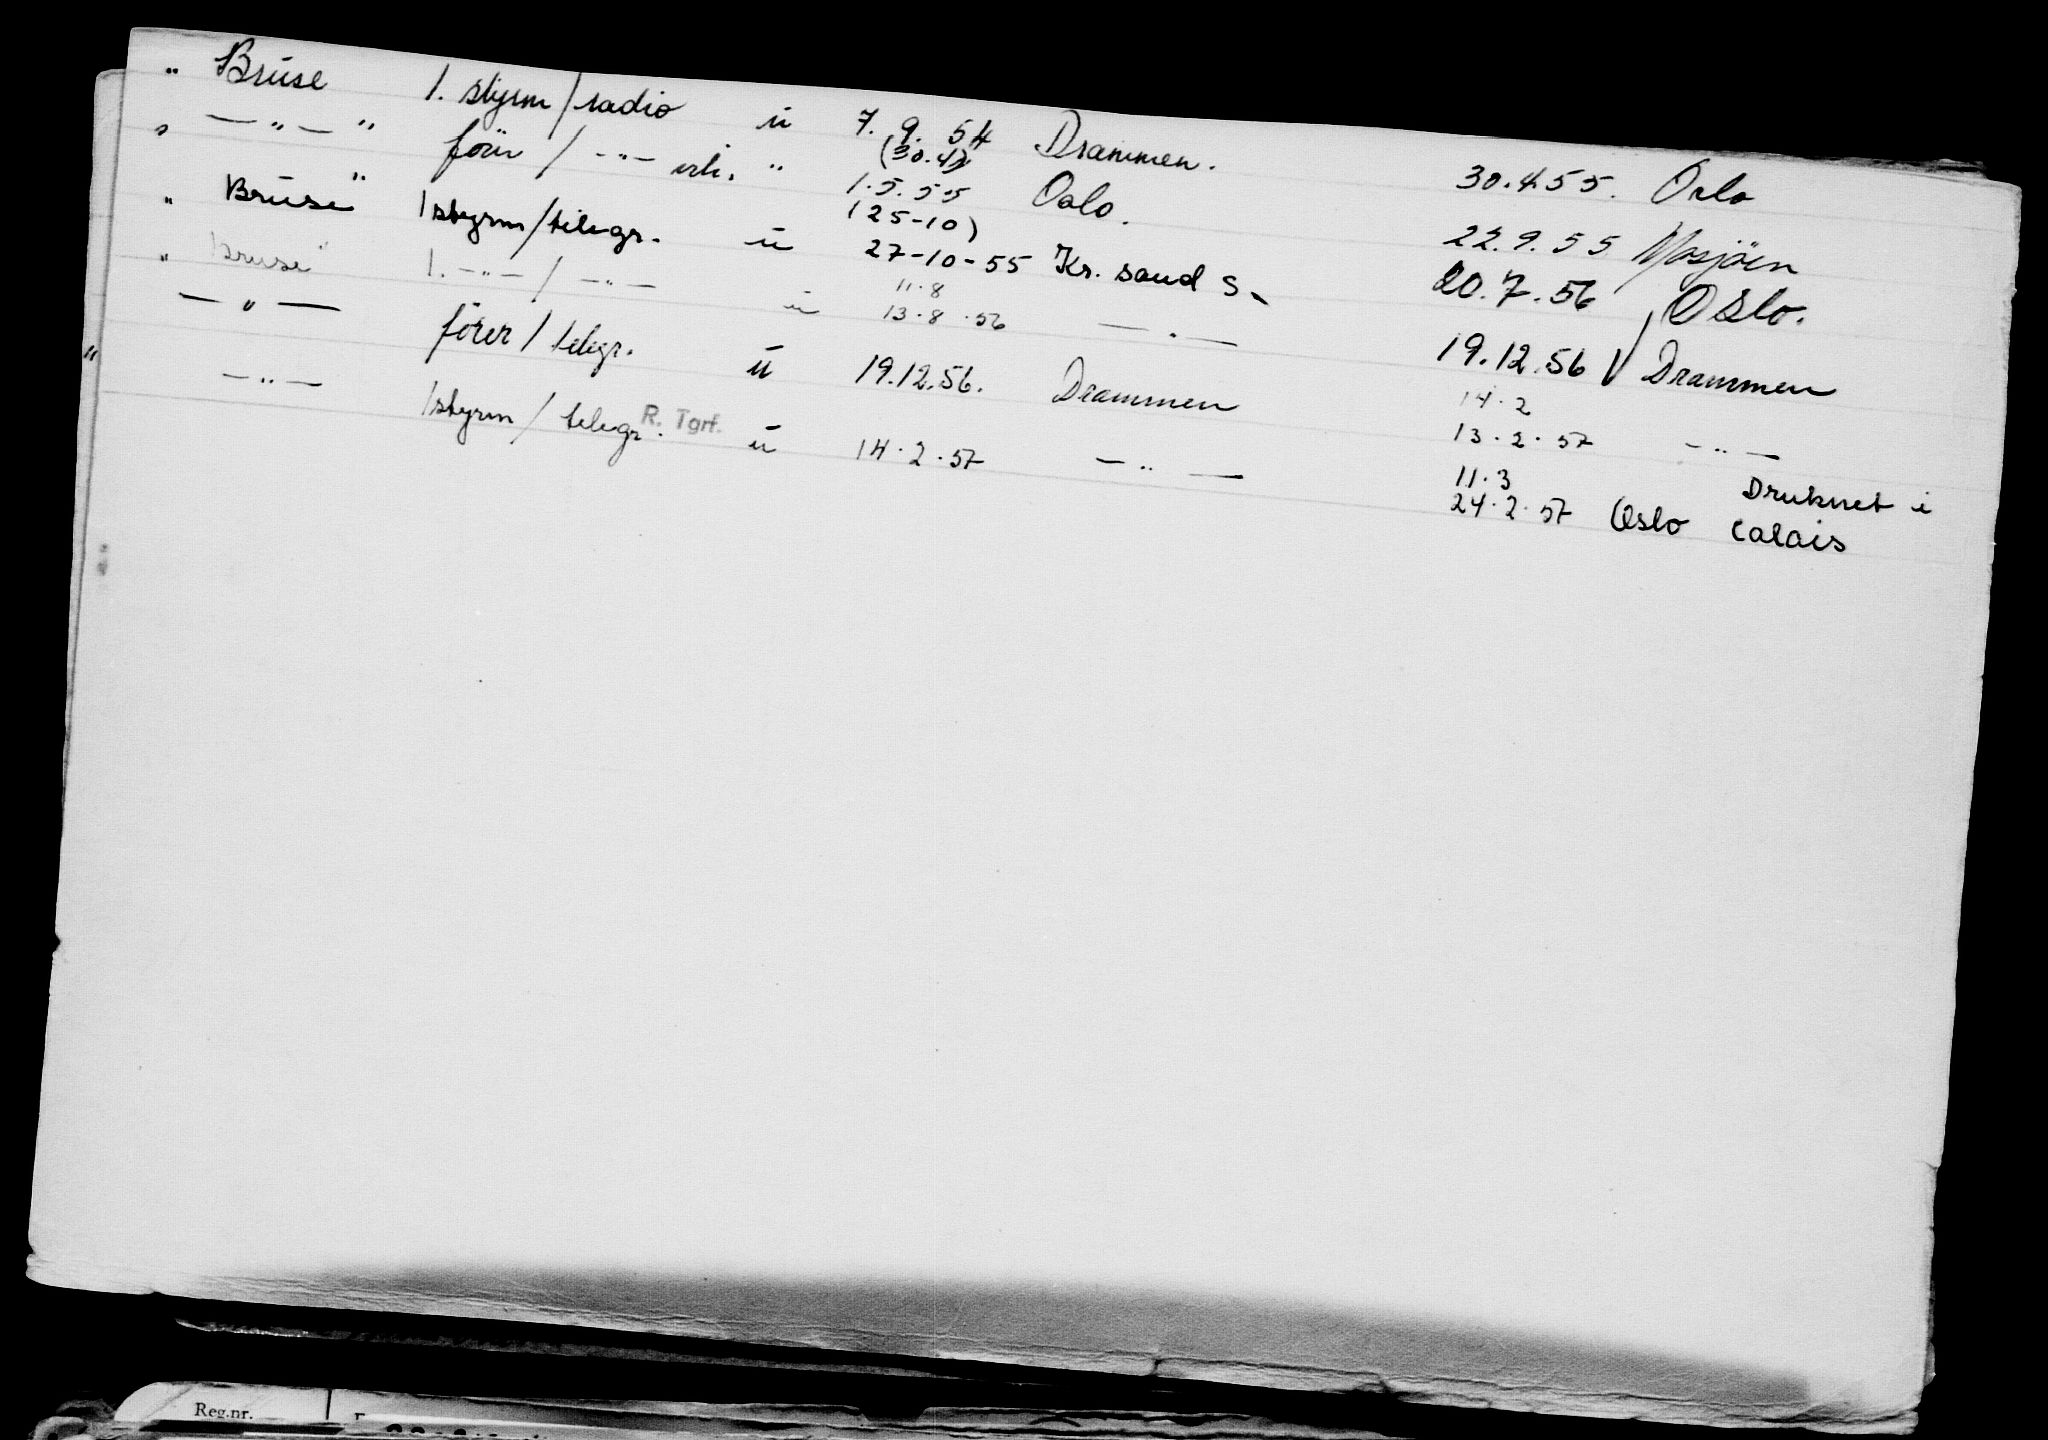 " Bruse 1. styrm/radio u 7.9.54 Drammen. 30.4.55. Oslo
" —"—" förer / —"— u (30.4) 1.5.55 Oslo. 22.9.55 Mosjöen
" Bruse" 1 styrm/telegr. u (25-10) 27-10-55 Kr. sand S. 20.7.56 Oslo.
" Bruse" 1. —"— / —"— u 11.8 13.8.56 —"— 19.12.56 Drammen
—"— förer / telegr. u 19.12.56. Drammen 14.2 13.2.57 —"—
" —"— 1 styrm / telegr. R. Tgrf. u 14.2.57 —"— 11.3 24.2.57 Oslo Druknet i Calais
Reg.nr.